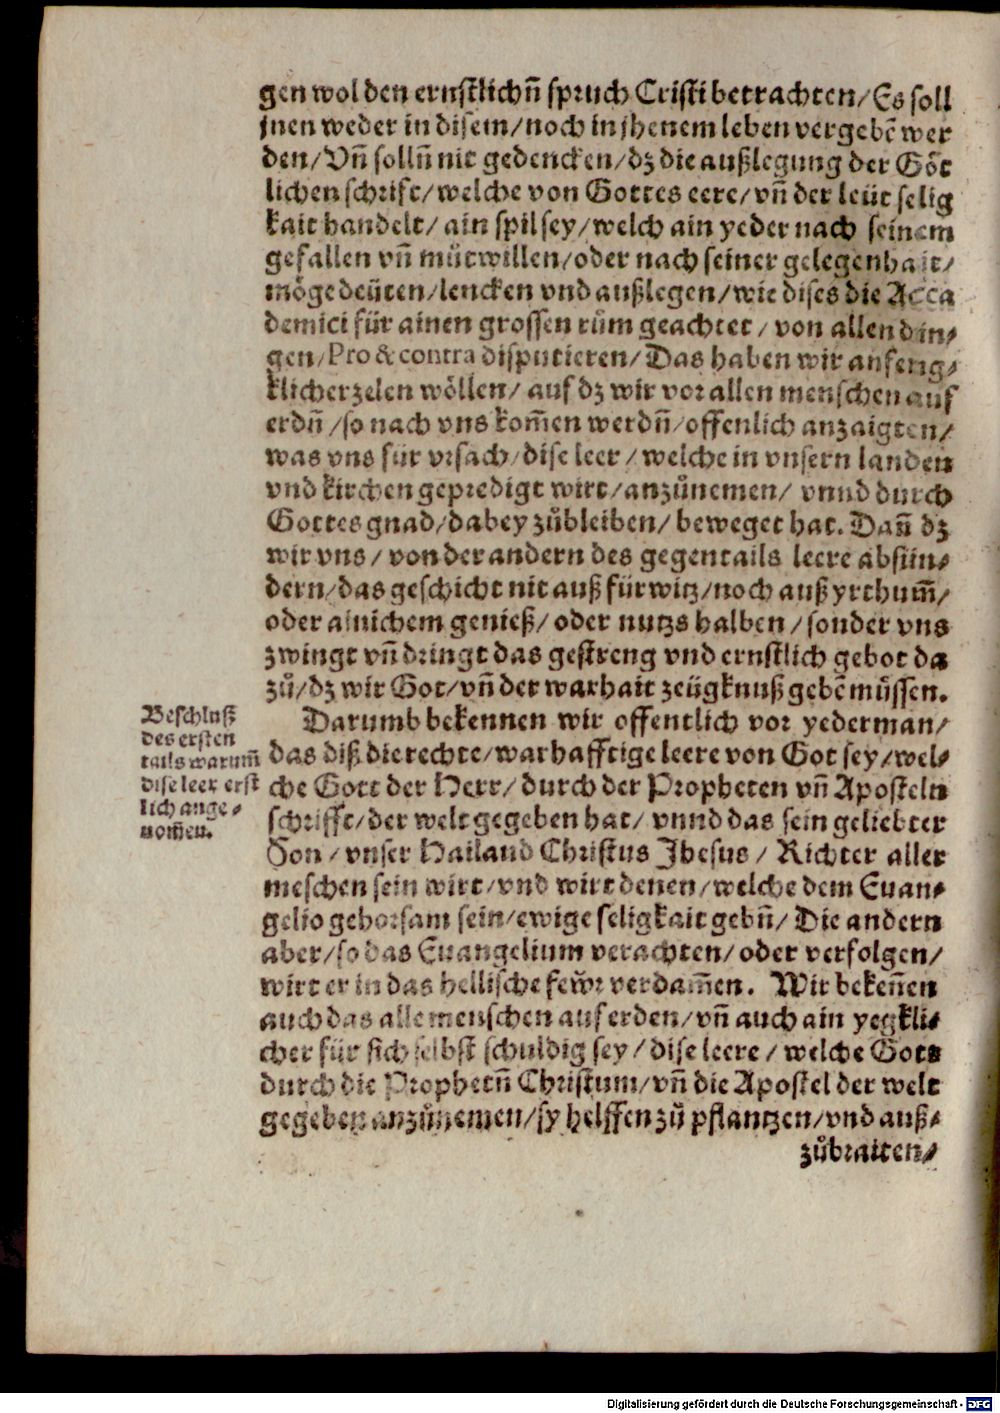 gen wol den ernstlichn̄ spruch Cristi betrachten/Es soll
jnen weder in disem/noch in jhenem leben vergebē wer
den/Vn̄ solln̄ nit gedencken/dz die außlegung der Göt
lichen schrift/welche von Gottes eere/vn̄ der leüt selig
kait handelt/ ain spil sey/welch ain yeder nach seinem
gefallen vn̄ můtwillen/oder nach seiner gelegenhait/
möge deüten/lencken vnd außlegen/wie dises die Acca
demici für ainen grossen rům geachtet/ von allen din⸗
gen/Pro & contra disputieren/Das haben wir anfeng⸗
klich erzelen wöllen/ auf dz wir vor allen menschen auf
erdn̄ /so nach vns kom̄en werdn̄/offenlich anzaigten/
was vns für vrsach/dise leer/welche in vnsern landen
vnd kirchen gepredigt wirt/anzůnemen/ vnnd durch
Gottes gnad/dabey zůbleiben/beweget hat. Dan̄ dz
wir vns/ von der andern des gegentails leere absün⸗
dern/das geschicht nit auß fürwitz/noch auß yrthum̄/
oder ainichem genieß/ oder nutzs halben/sonder vns
zwingt vn̄ dringt das gestreng vnd ernstlich gebot da
zů/dz wir Got/vn̄ der warhait zeügknuß gebē müssen.
Darumb bekennen wir offentlich vor yederman/
das diß die rechte/warhafftige leere von Got sey/wel⸗
che Gott der Herr/durch der Propheten vn̄ Aposteln
schrifft/der welt gegeben hat/ vnnd das sein geliebter
Son/vnser Hailand Christus Jhesus/ Richter aller
meschen sein wirt/vnd wirt denen/welche dem Euan⸗
gelio gehorsam sein/ewige seligkait gebn̄/ Die andern
aber/so das Euangelium verachten/oder verfolgen/
wirt er in das hellische fewr verdam̄en. Wir beken̄en
auch das alle menschen auf erden/vn̄ auch ain yegkli⸗
cher für sich selbst schuldig sey/dise leere/welche Gots
durch die Prophetn̄ Christum/vn̄ die Apostel der welt
gegeben anzůnemen/sy helffen zů pflantzen/vnd auß⸗
zůbraiten⸗
Beschluß
des ersten
tails warum̄
dise leer erst
lich ange⸗
nom̄en.
Digitalisierung gefördert durch die Deutsche Forschungsgemeinschaft - DFG